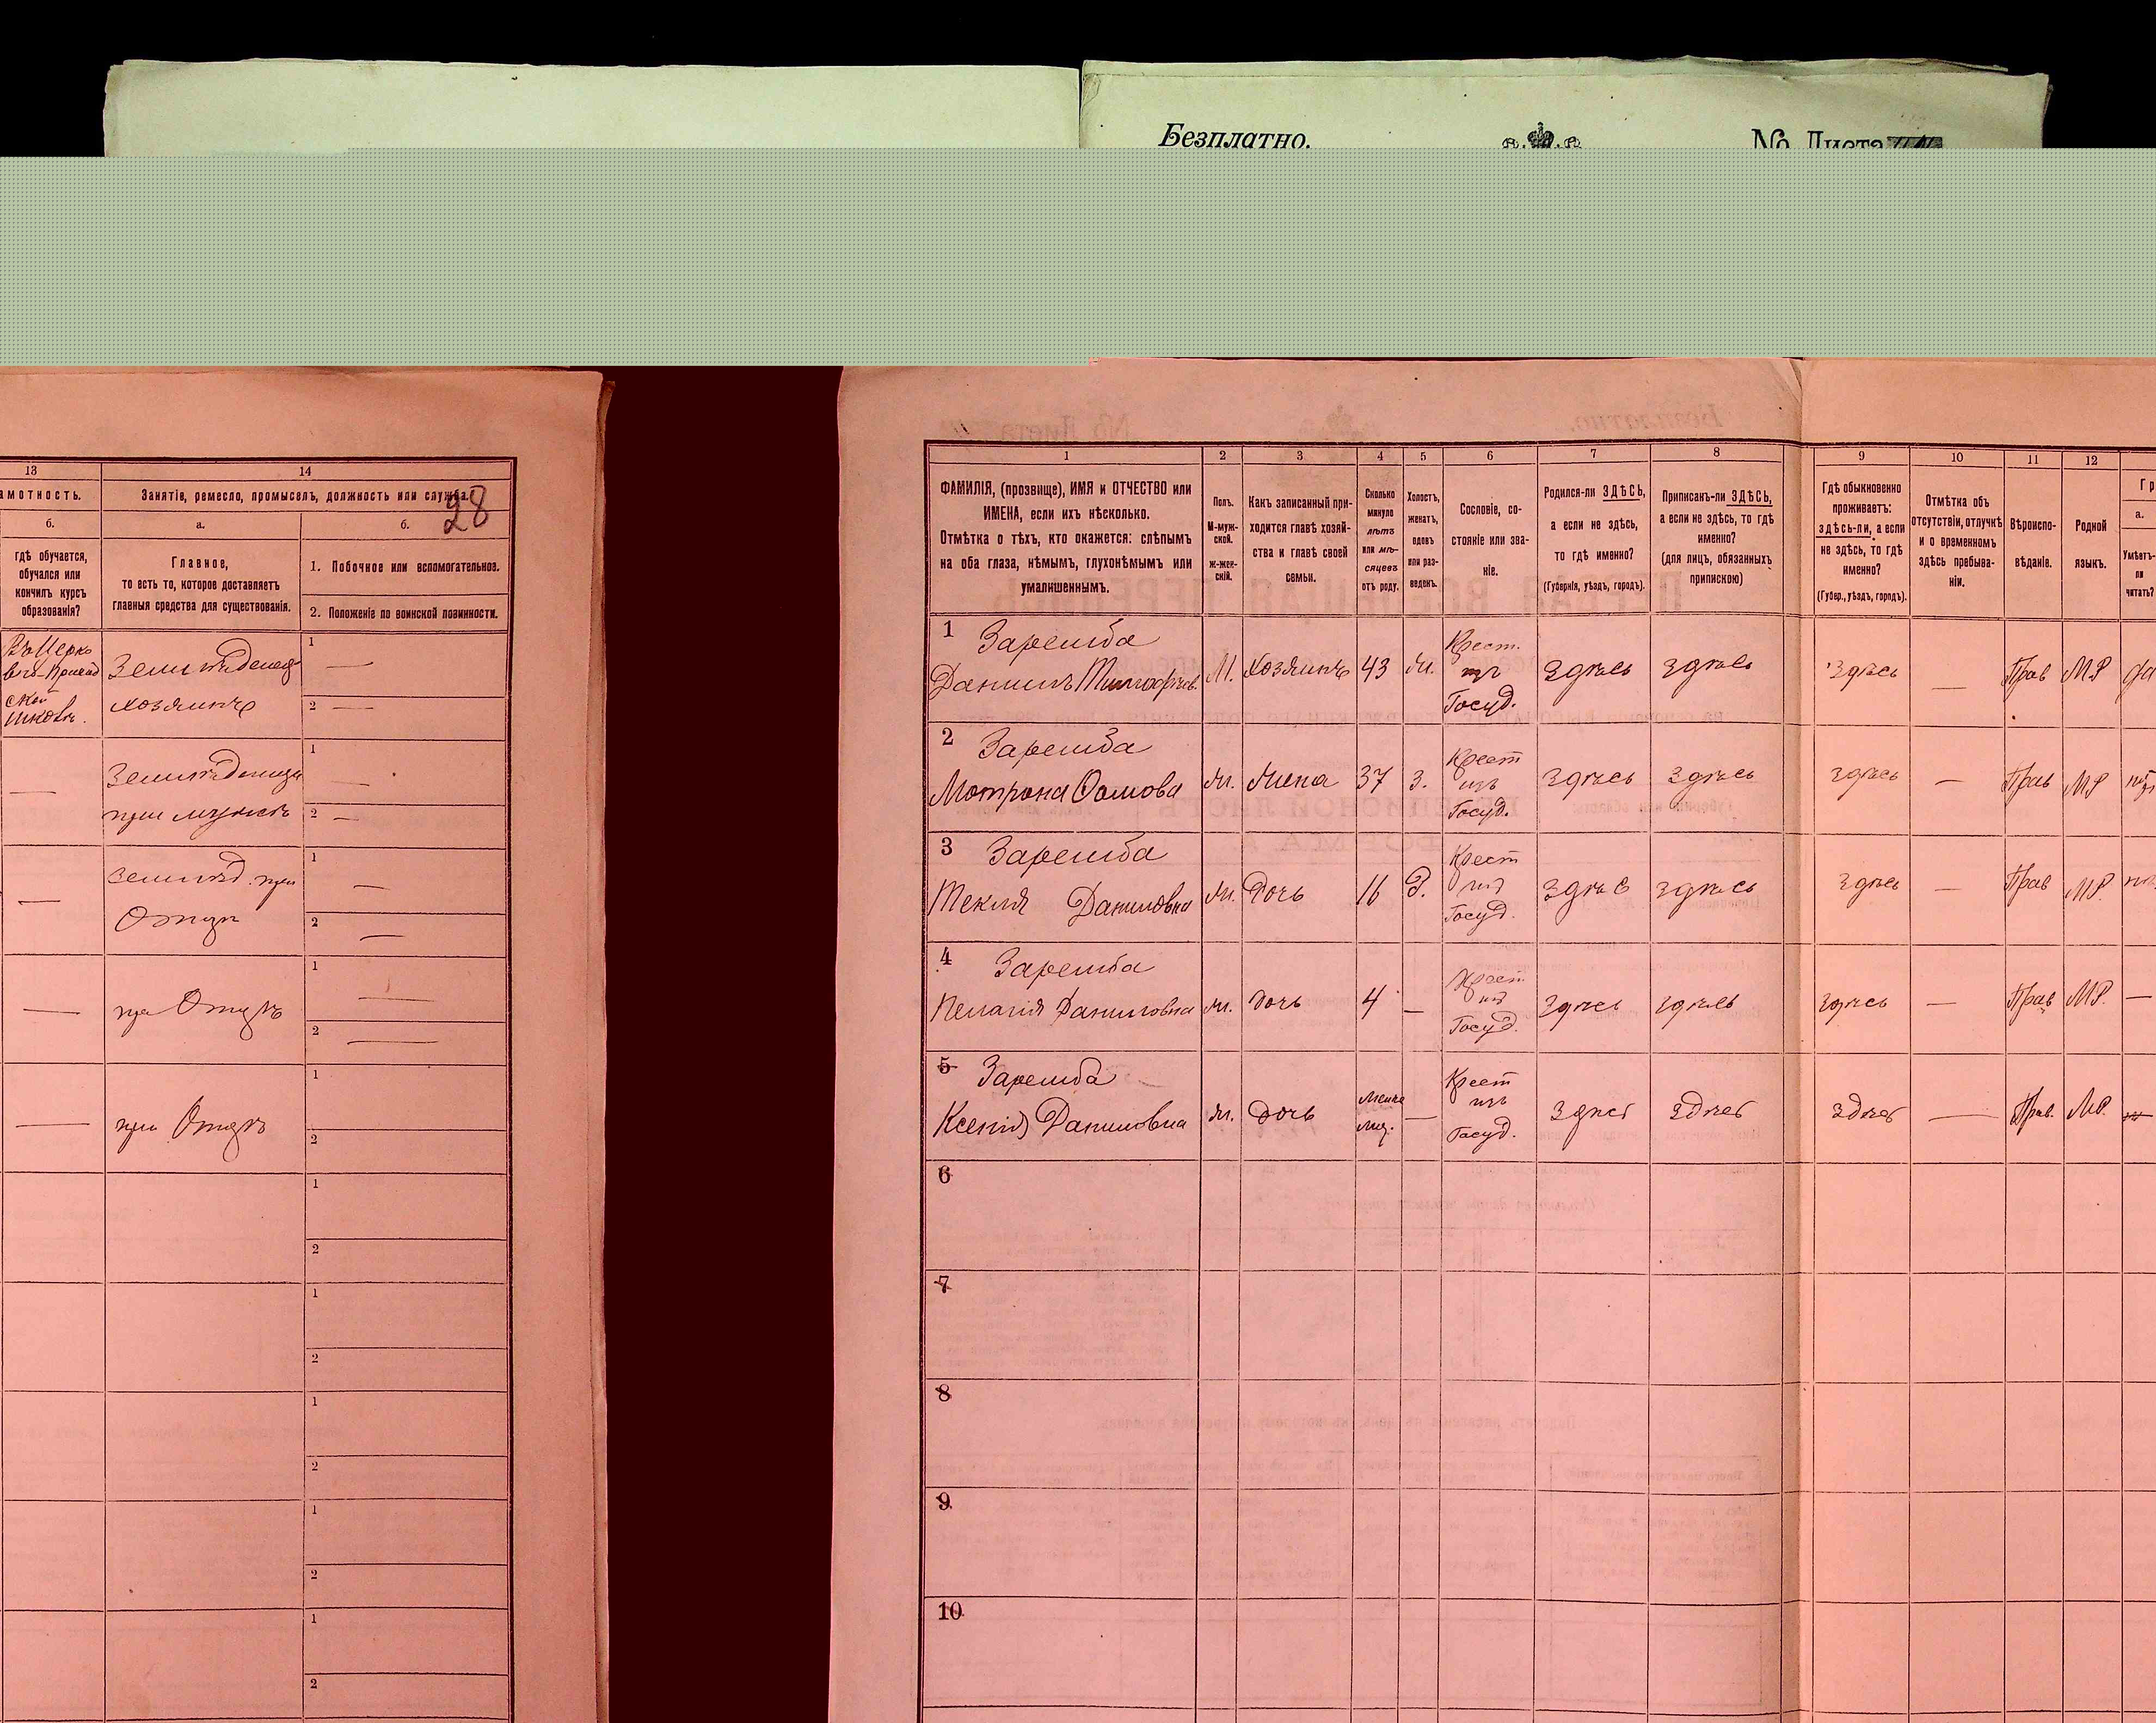 Безплатно.
№ Листа
28
13
14
амотность.
Занятіе, ремесло, промыселъ, должность или служба.
б.
а.
б.
гдѣ обучается,
обучался или
кончилъ курсъ
образованія?
Главное,
то есть то, которое доставляетъ
главныя средства для существованія.
1. Побочное или вспомогательное.
2. Положеніе по воинской повинности.
Земледѣлецъ
хозяинъ
1 —
2 —
—
при мужѣ
1 —
2 —
—
Земледѣл. при
Отцѣ
1 —
2 —
—
при Отцѣ
1 —
2 —
—
при Отцѣ
1
2
1
2
1
2
1
2
1
2
1
2
1
2
3
4
5
6
7
8
9
10
11
12
ФАМИЛІЯ, (прозвище), ИМЯ и ОТЧЕСТВО или
ИМЕНА, если ихъ нѣсколько.
Отмѣтка о тѣхъ, кто окажется: слѣпымъ
на оба глаза, нѣмымъ, глухонѣмымъ или
умалишеннымъ.
Полъ.
М-муж-
ской.
ж-жен-
скій.
Какъ записанный при-
ходится главѣ хозяй-
ства и главѣ своей
семьи.
Сколько
минуло
лѣтъ
или мѣ-
сяцевъ
отъ роду.
Холостъ,
женатъ,
вдовъ
или раз-
веденъ.
Сословіе, со-
стояніе или зва-
ніе.
Родился-ли ЗДѢСЬ,
а если не здѣсь,
то гдѣ именно?
(Губернія, уѣздъ, городъ).
Приписанъ-ли ЗДѢСЬ,
а если не здѣсь, то гдѣ
именно?
(для лицъ, обязанныхъ
припискою)
Гдѣ обыкновенно
проживаетъ:
здѣсь-ли, а если
не здѣсь, то гдѣ
именно?
(Губер., уѣздъ, городъ).
Отмѣтка объ
отсутствіи, отлучкѣ
и о временномъ
здѣсь пребыва-
ніи.
Вѣроиспо-
вѣданіе.
Родной
языкъ.
Гр
а.
Умѣетъ-
ли
читать?
1 Заремба
Данилъ Тимофѣев.
М. Хозяинъ 43
Крест.
изъ
Госуд.
здѣсь здѣсь здѣсь — Прав МР
2 Заремба
Мотрона Ѳомова
жена 37 З.
Крест
изъ
Госуд.
здѣсь здѣсь здѣсь — Прав МР
3 Заремба
Текля Даниловна
Дочь 16
Крест
изъ
Госуд.
здѣсь здѣсь здѣсь — Прав МР.
4 Заремба
Пелагія Даниловна
дочь 4 —
Крест
изъ
Госуд.
здѣсь здѣсь здѣсь — Прав МР. —
5 Заремба
Ксенія Даниловна
дочь
менѣе
мѣс.
—
Крест
изъ
Госуд.
здѣсь здѣсь здѣсь — Прав. МР.
6
7
8
9
10